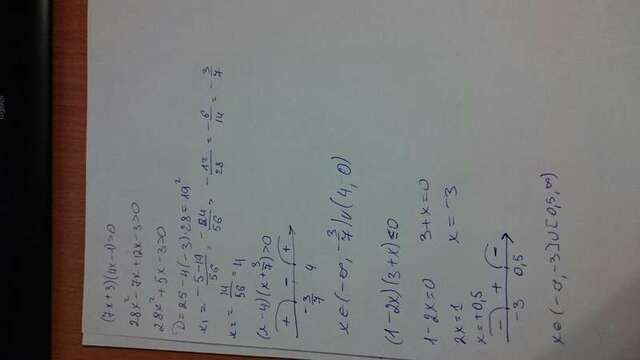 (7x+3)(4x-1)>0
28x²-7x+12x-3>0
28x²+5x-3>0
D=25-4(-3)·28=19²
x₁=-5-19/56=-24/56=-12/28=-6/14=-3/7
x₂=14/56=4
(x-4)(x+3/7)>0
+ - +
-3/7 4
x∈(-∞,-3/7)∪(4,0)
(1-2x)(3+x)≤0
1-2x=0 3+x=0
2x=1 x=-3
x=+0,5
- + -
-3 0,5
x∈(-∞,-3]∪[0,5,∞)